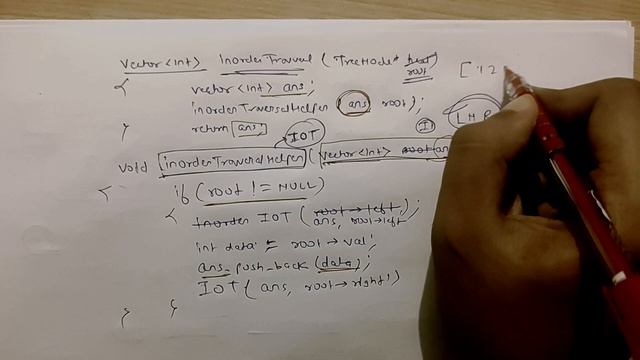 vector<int> InorderTravusal (TreeNode* root [ 1 2
{ vector<int> ans;
inorderTraversalHelper (ans, root);
} return ans; IOT LMR
void inorderTraversalHelper (vector<int> root an
{ if (root != NULL)
{ Inorder IOT (root→left);
ans, root→left
int data = root→val;
ans.push_back (data);
IOT( ans, root→right)
} }